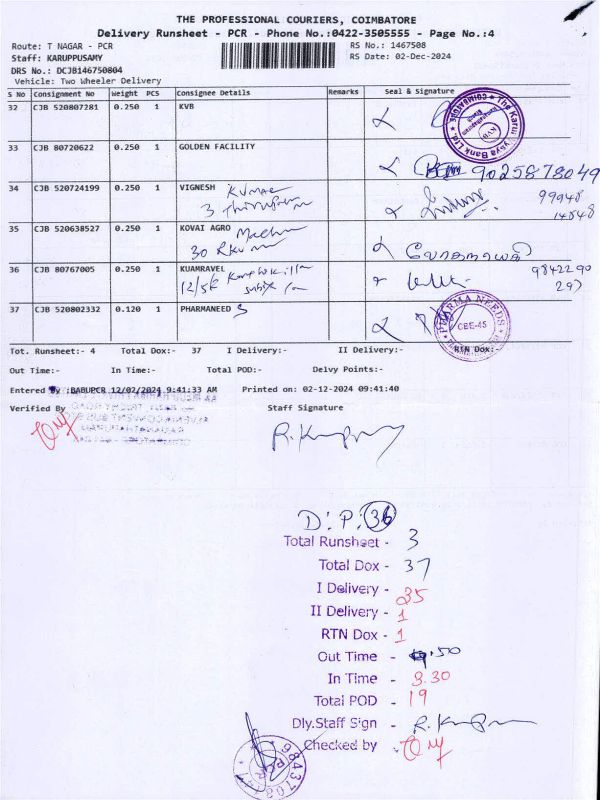 THE PROFESSIONAL COURIERS, COIMBATORE
Delivery Runsheet - PCR - Phone No.:0422-3505555 - Page No.:4
Route: T NAGAR - PCR RS No.: 1467508
Staff: KARUPPUSAMY RS Date: 02-Dec-2024
DRS No.: DCJB146750804
Vehicle: Two Wheeler Delivery
S No Consignment No Weight PCS Consignee Details Remarks Seal & Signature
32 CJB 520807281 0.250 1 KVB
The Karur Vysya Bank Ltd. KVB
33 CJB 80720622 0.250 1 GOLDEN FACILITY
9025878049
34 CJB 520724199 0.250 1 VIGNESH Kumar
3 99948
35 CJB 520638527 0.250 1 KOVAI AGRO
30
36 CJB 80767005 0.250 1 KUAMRAVEL
12/5K 9842290
297
37 CJB 520802332 0.120 1 PHARMANEED S
PHARMA NEEDS CBE-45
Tot. Runsheet:- 4 Total Dox:- 37 I Delivery:- II Delivery:- RTN Dox:-
Out Time:- In Time:- Total POD:- Delvy Points:-
Entered By :BABUPCR 12/02/2024 9:41:33 AM Printed on: 02-12-2024 09:41:40
Verified By Staff Signature
D.P: 36
Total Runsheet - 3
Total Dox - 37
I Delivery - 35
II Delivery - 1
RTN Dox - 1
Out Time - .50
In Time - 3.30
Total POD - 19
Dly.Staff Sign -
Checked by -
PCR